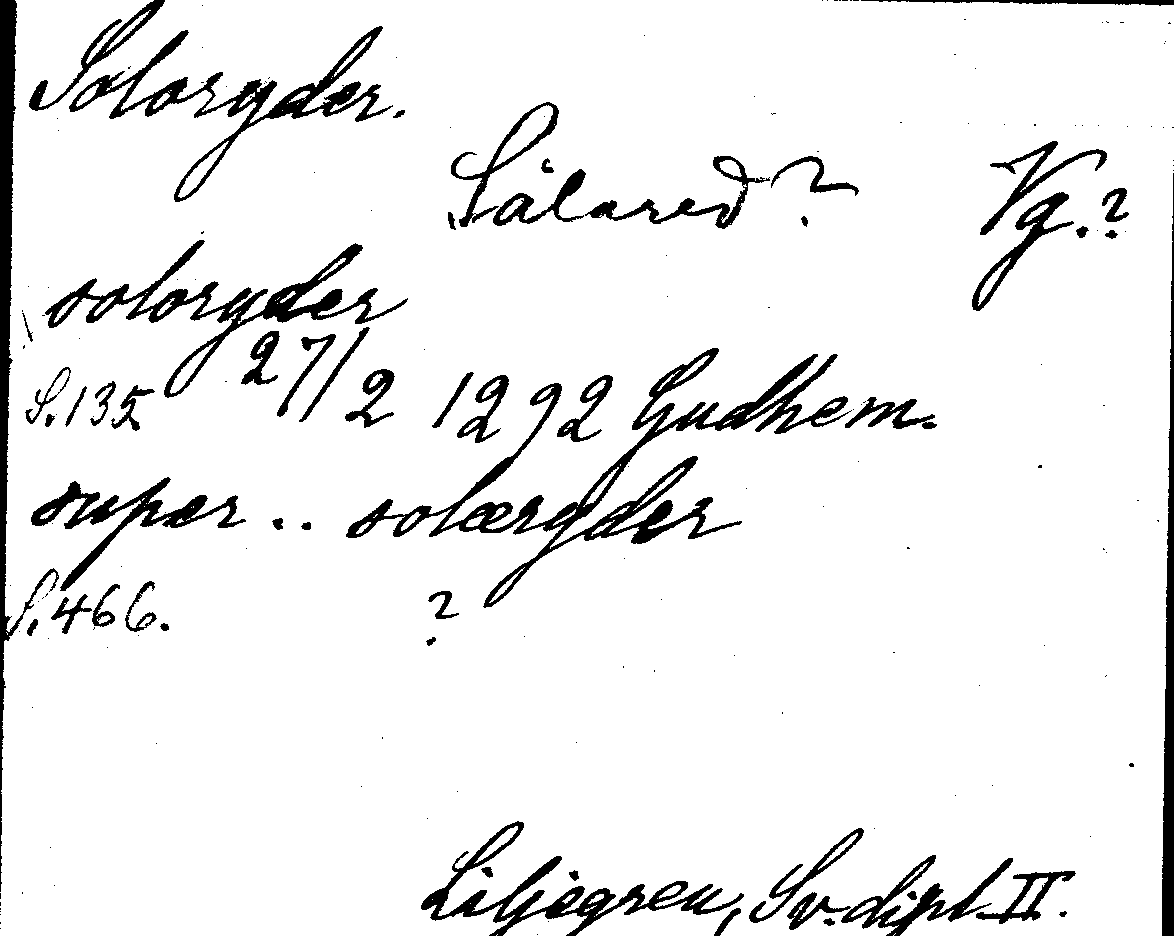 Soloryder.
Sålared? Vg.?
soloryder
S. 135 27/2 1292 Gudhem.
super .. solæryder
S. 466. ?
Liljegren, Sv. dipl. II.